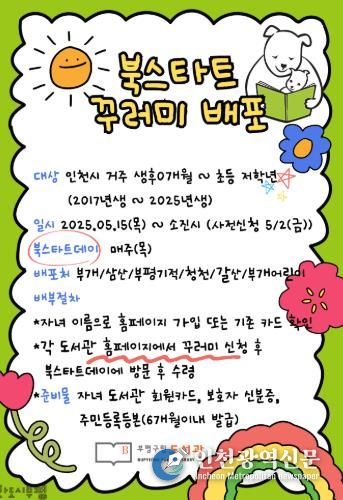 북스타트
꾸러미 배포
대상 인천시 거주 생후0개월 ~ 초등 저학년
(2017년생 ~ 2025년생)
일시 2025.05.15(목) ~ 소진시 (사전신청 5/2(금))
북스타트데이 매주(목)
배포처 부개/삼산/부평기적/청천/갈산/부개어린이
배부절차
*자녀 이름으로 홈페이지 가입 또는 기존 카드 확인
*각 도서관 홈페이지에서 꾸러미 신청 후
북스타트데이에 방문 후 수령
*준비물 자녀 도서관 회원카드, 보호자 신분증,
주민등록등본(6개월이내 발급)
부평구립도서관
인천광역신문
Incheon Metropolitan Newspaper